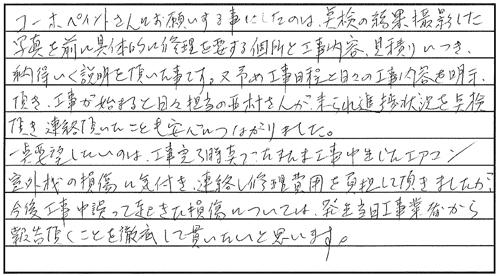 コーホペイントさんにお願いする事にしたのは、点検の結果撮影した
写真を前に具体的に修理を要する個所と工事内容、見積りにつき、
納得いく説明を頂いた事です。又予め工事日程と日々の工事内容も明示
頂き、工事が始まると日々担当の西村さんが来られ進捗状況を点検
頂き連絡頂いたことも安心につながりました。
一点要望したいのは、工事完了時真ったまま工事中生じたエアコン
室外機の損傷に気付き、連絡し修理費用を負担して頂きましたが、
今後工事中誤って起きた損傷については、発生当日工事業者から
報告頂くことを徹底して貰いたいと思います。